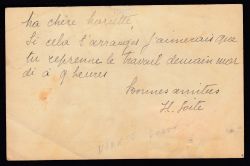 ma chère
Si cela t'arrange j'aimerais que
tu reprenne le travail demain mar
di à 9 heures
Bonnes amitiés